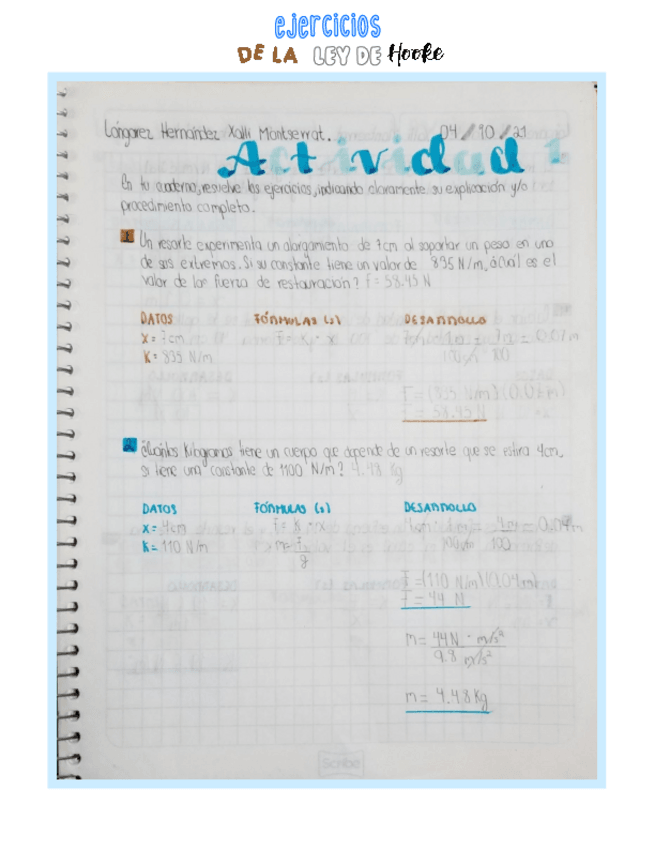 ejercicios
DE LA LEY DE Hooke
Lángarez Hernández Xalli Montserrat. 04/10/21
Actividad 1
En tu cuaderno, resuelve los ejercicios, indicando claramente su explicación y/o
procedimiento completo.
1 Un resorte experimenta un alargamiento de 7cm al soportar un peso en uno
de sus extremos. Si su constante tiene un valor de 835 N/m, ¿Cuál es el
valor de las fuerza de restauración? F = 58.45 N
DATOS FÓRMULAS (s) DESARROLLO
x = 7cm F = K · x = 0.07m
K = 835 N/m 100 100
F = (835 N/m) (0.07m)
F = 58.45 N
2 ¿Cuántos kilogramos tiene un cuerpo que depende de un resorte que se estira 4cm,
si tiene una constante de 1100 N/m? 4.48 kg
DATOS FÓRMULAS (s) DESARROLLO
x = 4cm F = K · x = 0.04m
K = 110 N/m m = F 100
g
F = (110 N/m) (0.04m)
F = 44 N
m = 44N · m/s²
9.8 m/s²
m = 4.48 Kg
Scribe